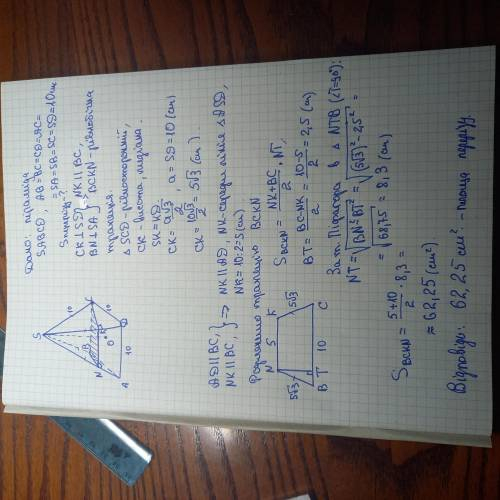 Дано: піраміда
SABCD, AB=BC=CD=AC=
=SA=SB=SC=SD=10см
Sперерізу-?
CK⊥SD, NK||BC,
BN⊥SA, BCKN-рівнобічна
трапеція.
△SCD-рівносторонній,
CK-висота, медіана.
SK=KD
CK=a√3/2, a=SD=10(см)
CK=10√3/2=5√3(см).
AD||BC,
NK||BC, } => NK||AD, NK-середня лінія △ASD,
NK=10:2=5(см)
Розглянемо трапецію BCKN
SBCKN=NK+BC/2·NT,
BT=BC-NK/2=10-5/2=2,5(см)
За т. Піфагора в △NTB (∠T=90°):
NT=√BN²-BT²=√(5√3)²-2,5²=
=√68,75=8,3(см)
SBCKN=5+10/2·8,3=
=62,25(см²)
Відповідь: 62,25см²-площа перерізу.
S
N
K
A
B
C
D
O
10
10
10
N
5
K
5√3
5√3
B
T
10
C